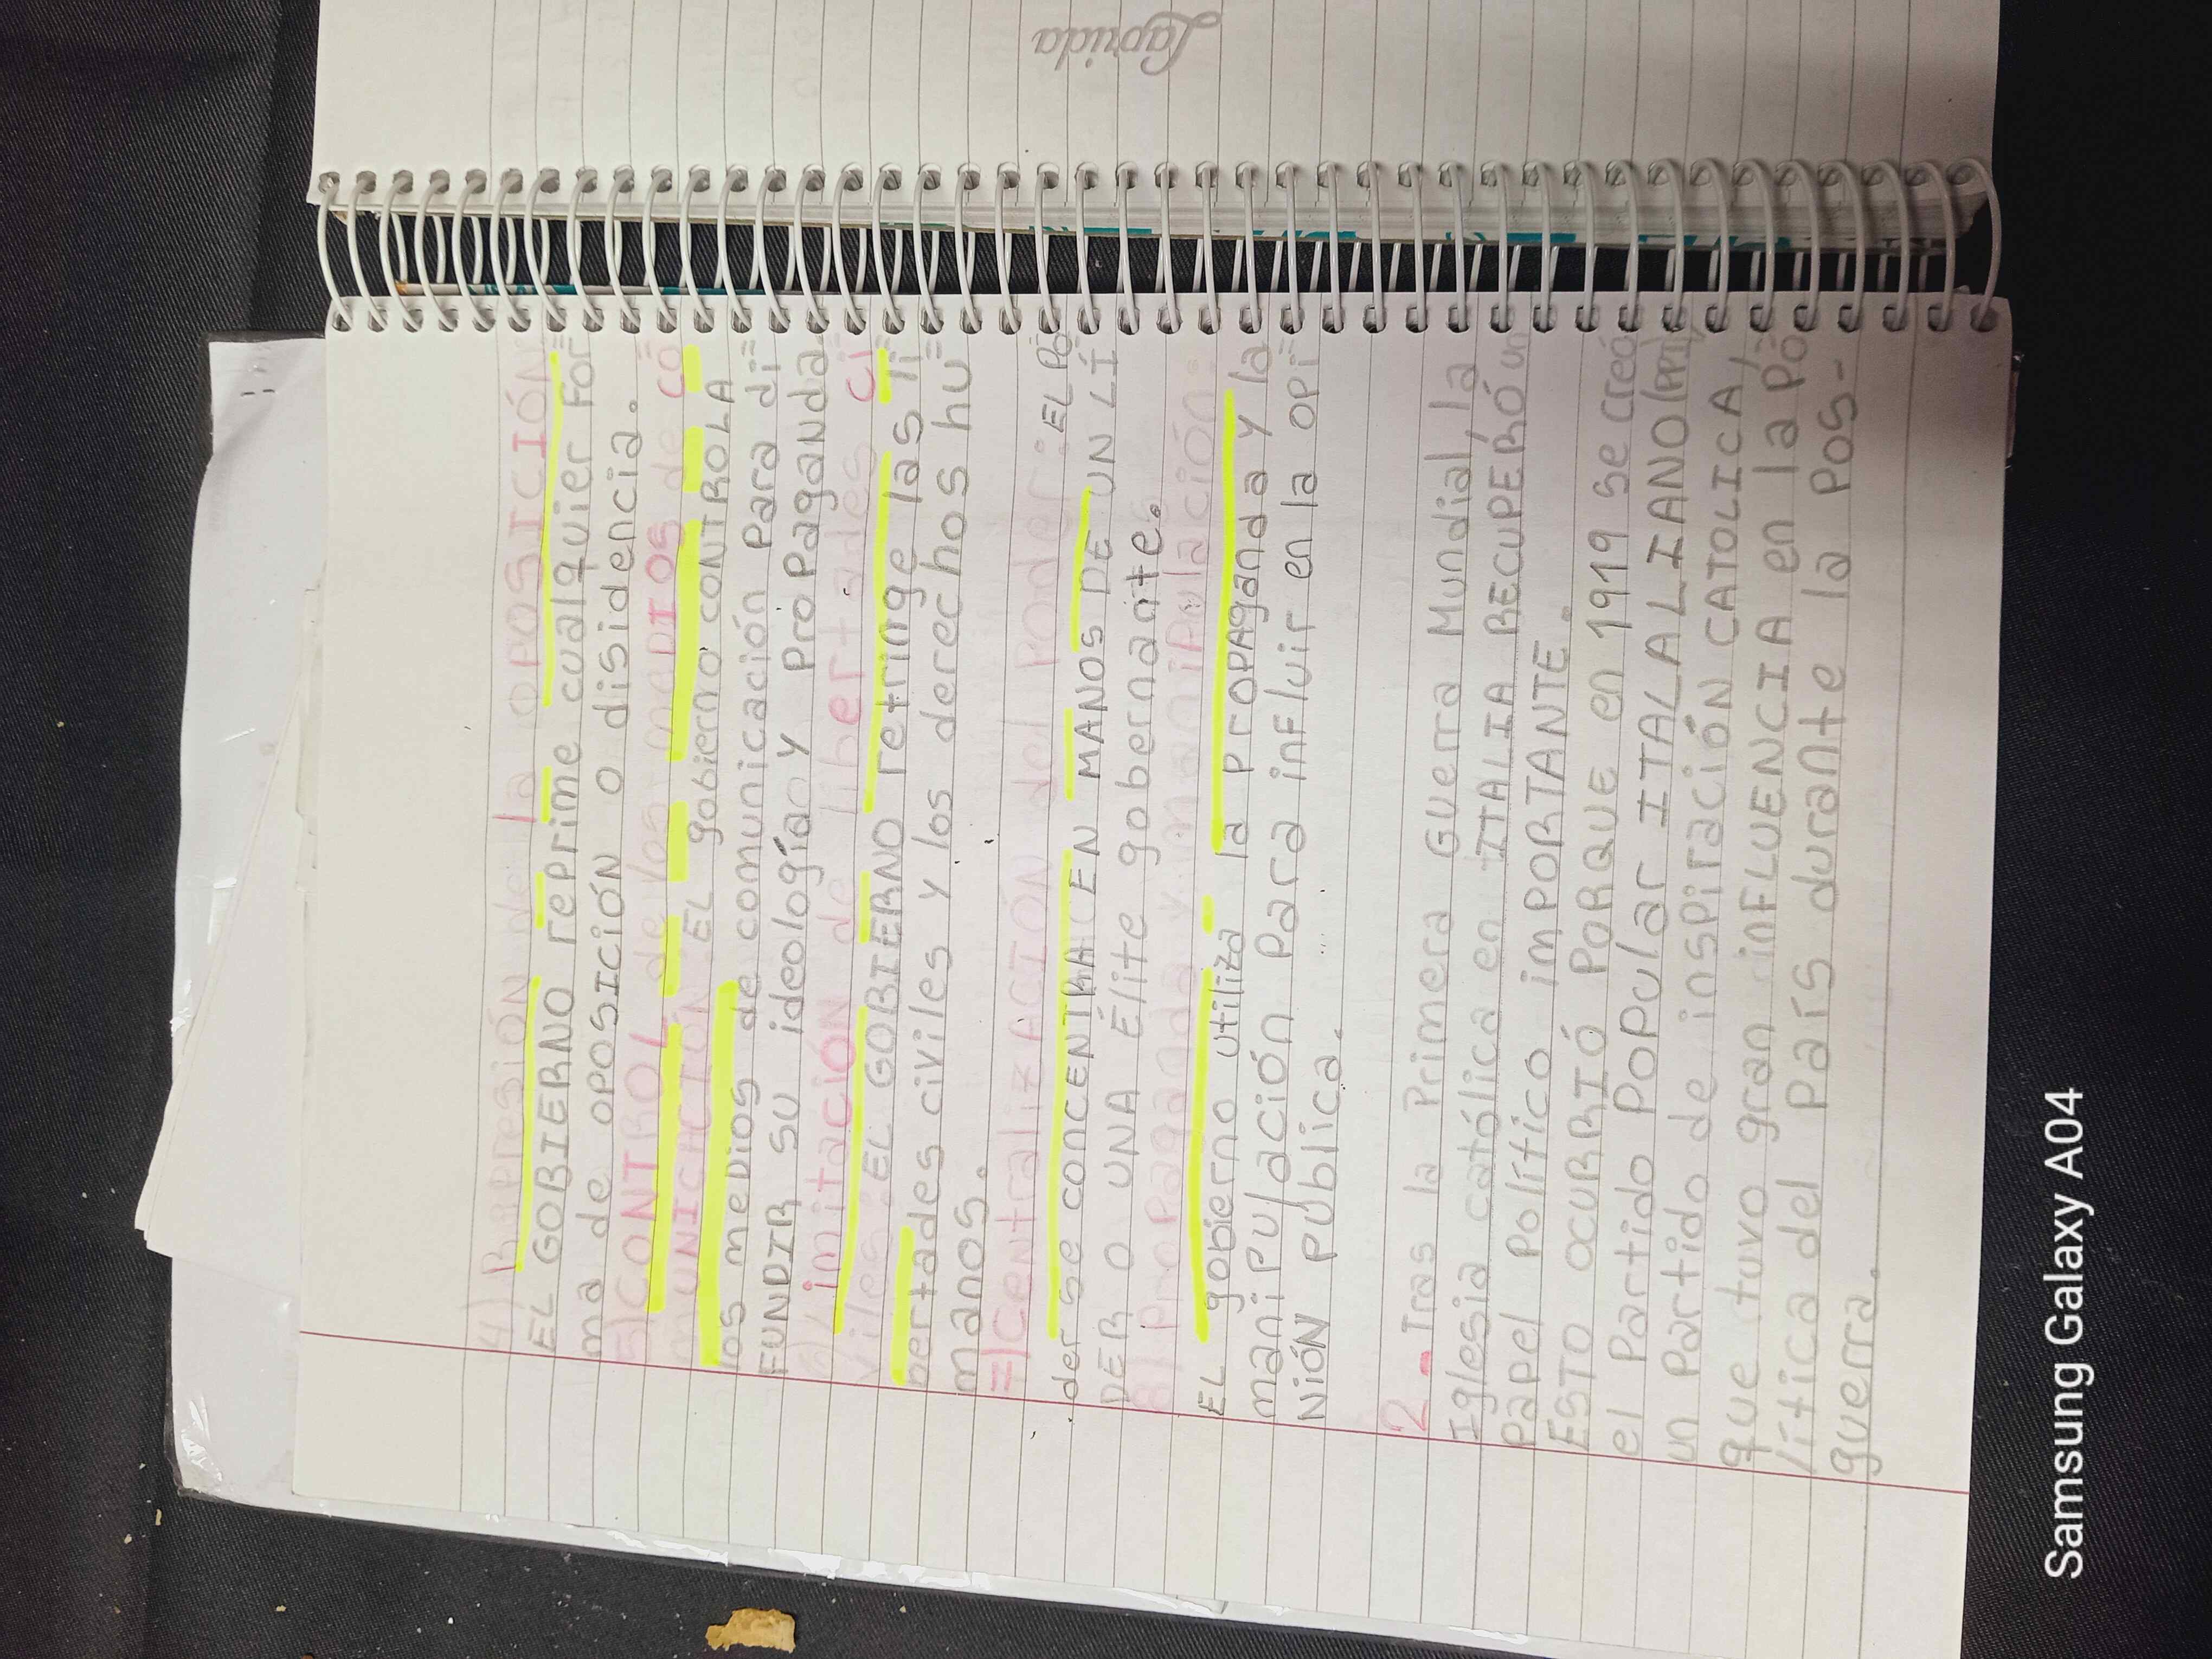 4) Represión de la OPOSICIÓN
EL GOBIERNO reprime cualquier For=
ma de OPOSICIÓN o disidencia.
5) CONTROL de los meDIOS de co=
mUNICACIÓN: EL gobierno CONTROLA
los meDios de comunicación Para di=
FUNDIR SU ideología y ProPaganda.
6) Limitación de libertades ci=
viles: EL GOBIERNO retringe las li=
bertades civiles y los derechos hu=
manos.
=) CentralizACIÓN del Poder: EL Po=
der se conCENTRA EN MANOS DE UN LÍ=
DER O UNA Élite gobernante.
8) ProPaganda y maniPulación:
EL gobierno utiliza la PrOPAganda y la
maniPulación Para inFluir en la oPi=
NIÓN Pública.
2. Tras la Primera Guerra Mundial, la
Iglesia católica en ITALIA RECUPERÓ un
PaPel Político imPORTANTE.
ESTO OCURRIÓ PORQUE en 1919 se creó
el Partido PoPular ITALALIANO (PPI)
un Partido de insPiración CATOLICA,
que tuvo gran inFLUENCIA en la Po=
lítica del País durante la Pos-
guerra.
Laprida
Samsung Galaxy A04